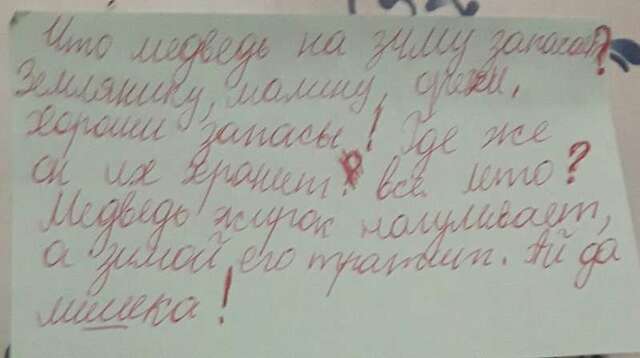 Что медведь на зиму запасает?
Землянику, малину, орехи,
Хороши запасы! Где же
он их хранит? все лето?
Медведь жирок нагуливает,
а зимой его тратит. Ай да
мишка!